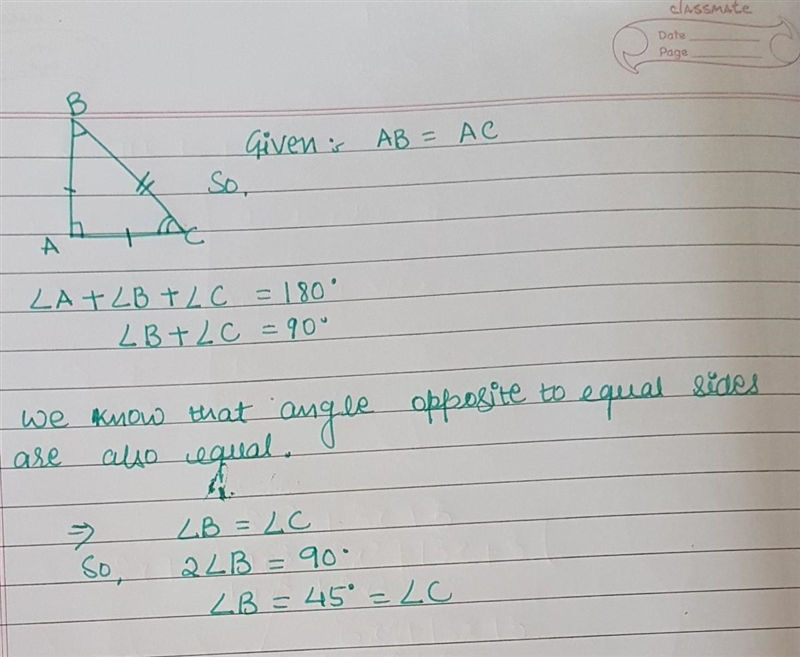 classmate
Date
Page
B
Given :- AB = AC
So,
A
C
∠A + ∠B + ∠C = 180°
∠B + ∠C = 90°
We know that angle opposite to equal sides
are also equal.
⇒ ∠B = ∠C
So, 2∠B = 90°
∠B = 45° = ∠C